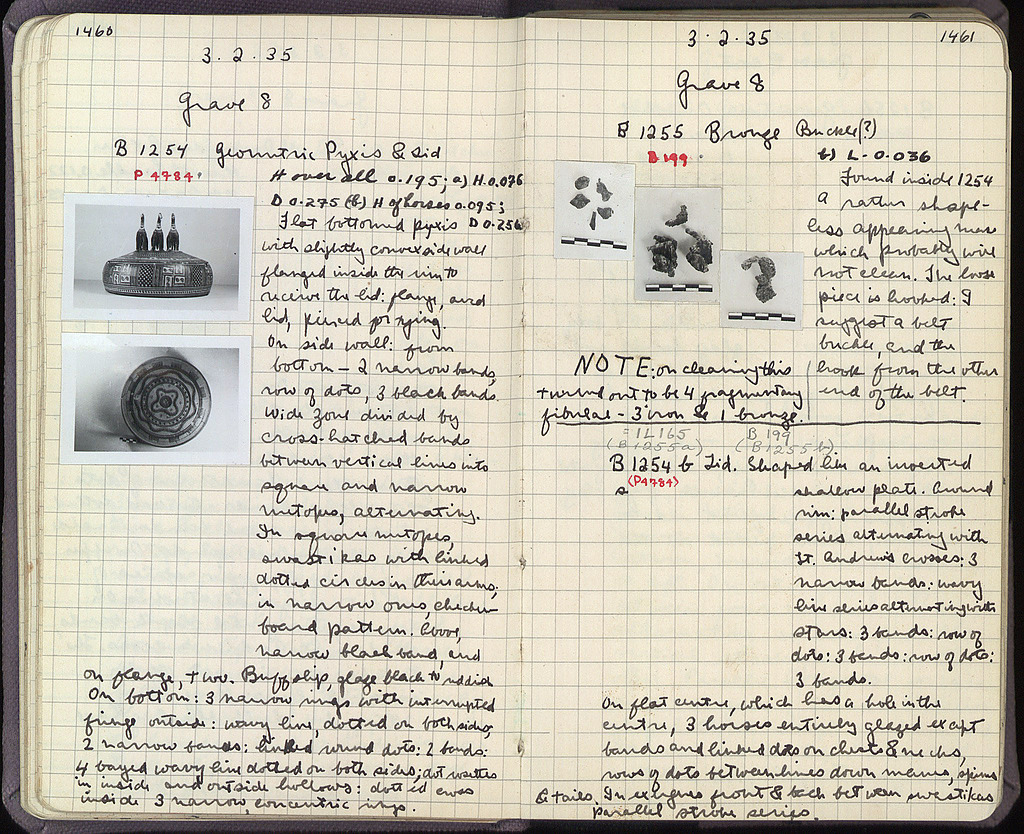 1460
3.2.35
Grave 8
B 1254 Geometric Pyxis & Lid
P 4784
H over all 0.195; a) H.0.076
D 0.275 (b) H of horses 0.095;
Flat bottomed pyxis D 0.256
with slightly convex side wall
flanged inside the rim to
receive the lid: flange, and
lid, pierced for tying.
On side wall: from
bottom – 2 narrow bands,
row of dots, 3 black bands.
Wide zone divided by
cross-hatched bands
between vertical lines into
square and narrow
metopes, alternating.
In square metopes,
swastikas with linked
dotted circles in their arms,
in narrow ones, checker-
board pattern. Above,
narrow black band, and
on flange, two. Buff slip, glaze black to reddish
On bottom: 3 narrow rings with interrupted
fringe outside: wavy line, dotted on both sides,
2 narrow bands: linked round dots: 2 bands:
4 bayed wavy line dotted on both sides; dot rosettes
in inside and outside hollows: dotted cross
inside 3 narrow concentric rings.
3.2.35
1461
Grave 8
B 1255 Bronze Buckle(?)
B 199
b) L. 0.036
Found inside 1254
A rather shape-
less appearing mass
which probably will
not clean. The loose
piece is hooked: I
suggest a belt
buckle, and the
hook from the other
end of the belt.
NOTE: on cleaning this
turned out to be 4 fragmentary
fibulae – 3 iron & 1 bronze.
= IL165 B 199
(B 1255a) (B 1255b)
B 1254 b Lid. Shaped like an inverted
(P4784)
s
shallow plate. Around
rim: parallel stroke
series alternating with
St. Andrew's crosses: 3
narrow bands: wavy
line series alternating with
stars: 3 bands: row of
dots: 3 bands: row of dots:
3 bands.
On flat centre, which has a hole in the
centre, 3 horses entirely glazed except
bands and linked dots on chests & necks,
rows of dots between lines down manes, spines
& tails. In exergues front & back between swastikas
parallel stroke series.